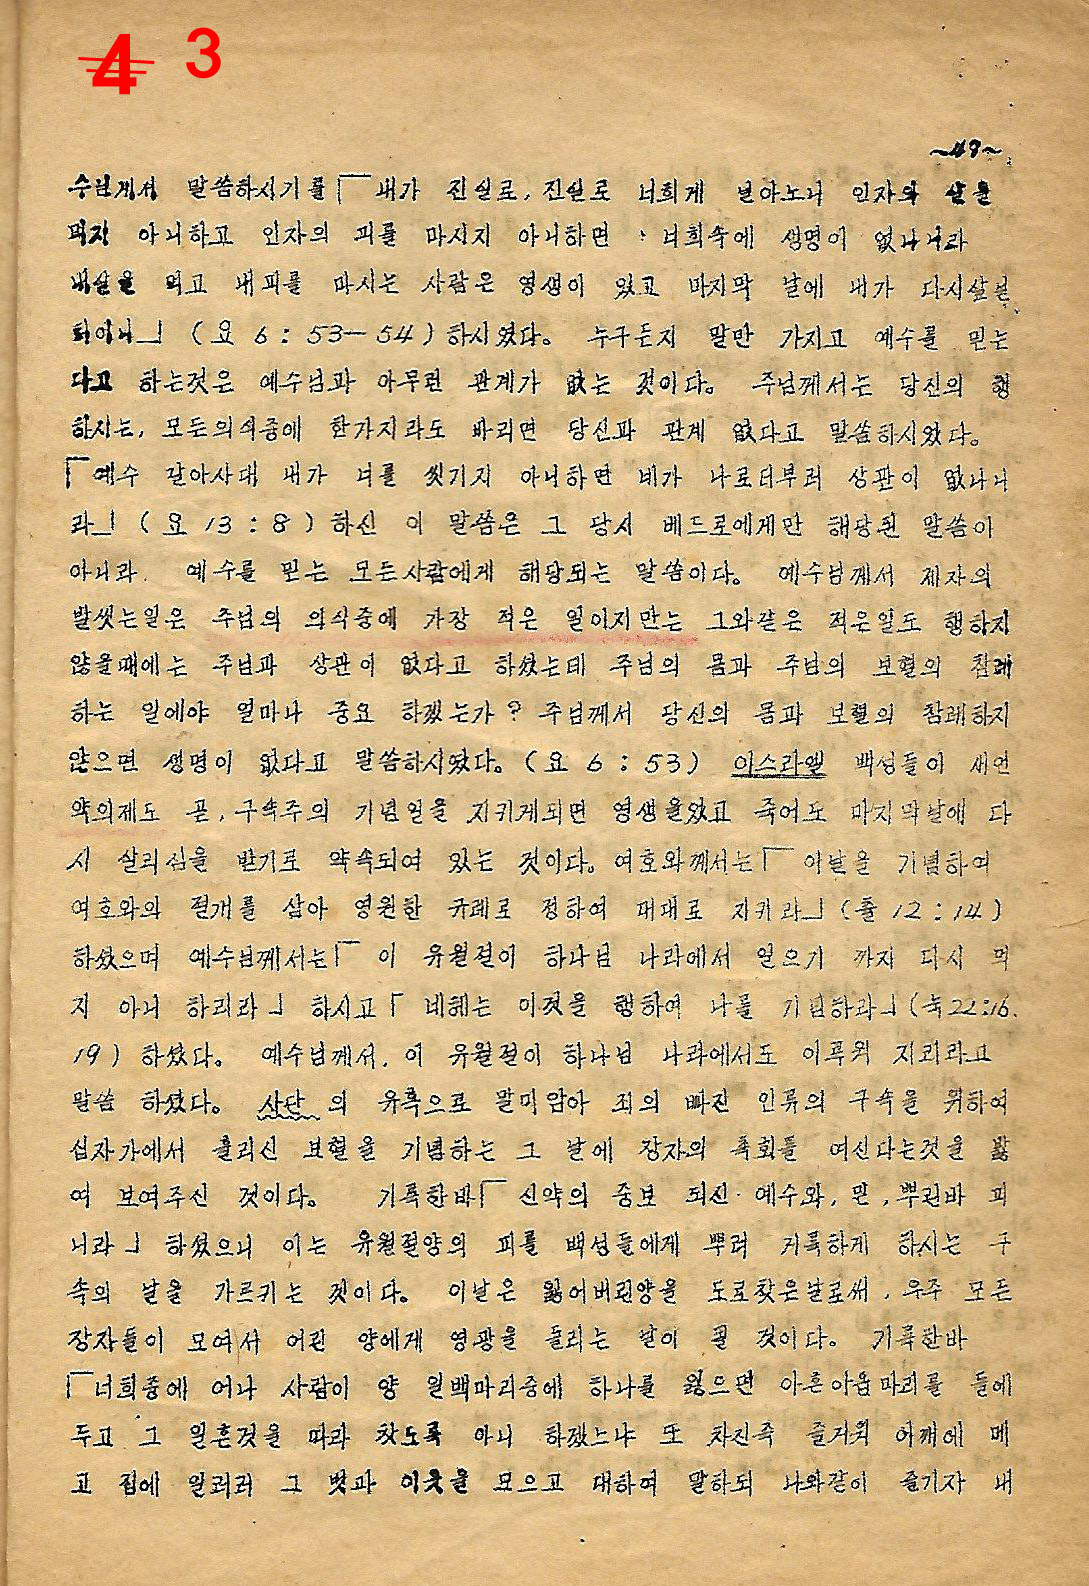 4 3
~49~
수님게서 말씀하시기를「내가 진실로, 진실로 너희게 닐아노니 인자의 살을
먹지 아니하고 인자의 피를 마시지 아니하면 너희속에 생명이 없나니라
내살을 먹고 내피를 마시는 사람은 영생이 있고 마지막 날에 내가 다시살닌
되이니」 (요 6 : 53-54) 하시였다。 누구든지 말만 가지고 예수를 믿는
다고 하는것은 예수님과 아무런 관계가 없는 것이다。 주님께서는 당신의 행
하시는, 모든의식중에 한가지라도 바리면 당신과 관계 없다고 말씀하시였다。
「예수 갈아사대 내가 너를 씻기지 아니하면 네가 나로더부러 상관이 없나니
라」 (요 13 : 8) 하신 이 말씀은 그 당시 베드로에게만 해당된 말씀이
아니라. 예수를 믿는 모든사람에게 해당되는 말씀이다。 예수님께서 제자의
발씻는일은 주님의 의식중에 가장 적은 일이지만는 그와같은 적은일도 행하지
않을때에는 주님과 상관이 없다고 하셨는데 주님의 몸과 주님의 보혈의 참례
하는 일에야 얼마나 중요 하겠는가? 주님께서 당신의 몸과 보혈의 참례하지
않으면 생명이 없다고 말씀하시였다。(요 6 : 53) 이스라엘 백성들이 새언
약의제도 곧, 구속주의 기념일을 지키게되면 영생을있고 죽어도 마지막날에 다
시 살리심을 받기로 약속되여 있는 것이다。여호와께서는「 이날을 기념하여
여호와의 절개를 삼아 영원한 규례로 정하여 대대로 지키라」(출 12 : 14)
하셨으며 예수님께서는「 이 유월절이 하나님 나라에서 일으기 까지 다시 먹
지 아니 하리라」 하시고「 네헤는 이것을 행하여 나를 기념하라」(눅22:16.
19) 하셨다。 예수님께서, 이 유월절이 하나님 나라에서도 이루워 지리라고
말씀 하셨다。 사단 의 유혹으로 말미암아 죄의 빠진 인류의 구속을 위하여
십자가에서 흘리신 보혈을 기념하는 그 날에 장자의 축회를 여신다는것을 밝
여 보여주신 것이다。 기록한바「 신약의 중보 되신·예수와, 및, 뿌린바 피
니라」 하셨으니 이는 유월절양의 피를 백성들에게 뿌려 거룩하게 하시는 구
속의 날을 가르키는 것이다。 이날은 잃어버린양을 도로찾은날로써, 우주 모든
장자들이 모여서 어린 양에게 영광을 돌리는 날이 될 것이다。 기록한바
「너희중에 어나 사람이 양 일백마리중에 하나를 잃으면 아흔아홉마리를 들에
두고 그 일흔것을 따라 찾도록 아니 하겠느냐 또 차진즉 즐거워 어깨에 메
고 집에 일러러 그 벗과 이웃을 모으고 대하여 말하되 나와같이 즐기자 내